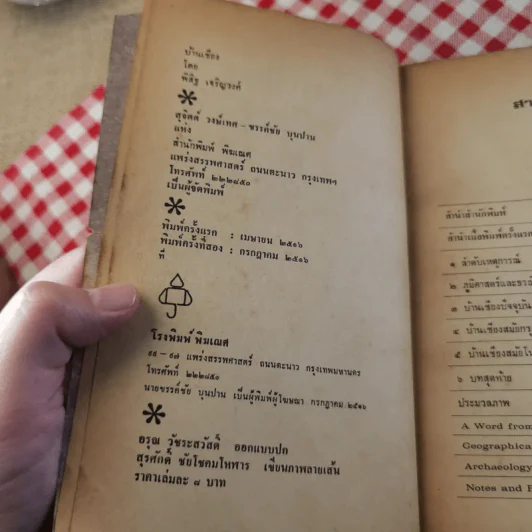 บ้านเชียง
โดย
พิสิฐ เจริญวงศ์
*
สุจิตต์ วงษ์เทศ – ขรรค์ชัย บุนปาน
แห่ง
สำนักพิมพ์ พิฆเณศ
แพร่งสรรพศาสตร์ ถนนตะนาว กรุงเทพฯ
โทรศัพท์ ๒๒๒๘๕๐
เป็นผู้จัดพิมพ์
*
พิมพ์ครั้งแรก : เมษายน ๒๕๑๖
พิมพ์ครั้งที่สอง : กรกฎาคม ๒๕๑๖
ที่
โรงพิมพ์ พิฆเณศ
๙๙ – ๙๗ แพร่งสรรพศาสตร์ ถนนตะนาว กรุงเทพมหานคร
โทรศัพท์ ๒๒๒๘๕๐
นายขรรค์ชัย บุนปาน เป็นผู้พิมพ์ผู้โฆษณา กรกฎาคม ๒๕๑๖
*
อรุณ วัชระสวัสดิ์ ออกแบบปก
สุรศักดิ์ ชัยโชคมไหหาร เขียนภาพลายเส้น
ราคาเล่มละ ๘ บาท
สา
คำนำสำนักพิมพ์
คำนำเมื่อพิมพ์ครั้งแรก
๑ ลำดับเหตุการณ์
๒ ภูมิศาสตร์และธรณ
๓ บ้านเชียงปัจจุบัน
๔ บ้านเชียงสมัยก
๕ บ้านเชียงสมัย
๖ บทสุดท้าย
ประมวลภาพ
A Word from
Geographical
Archaeology
Notes and